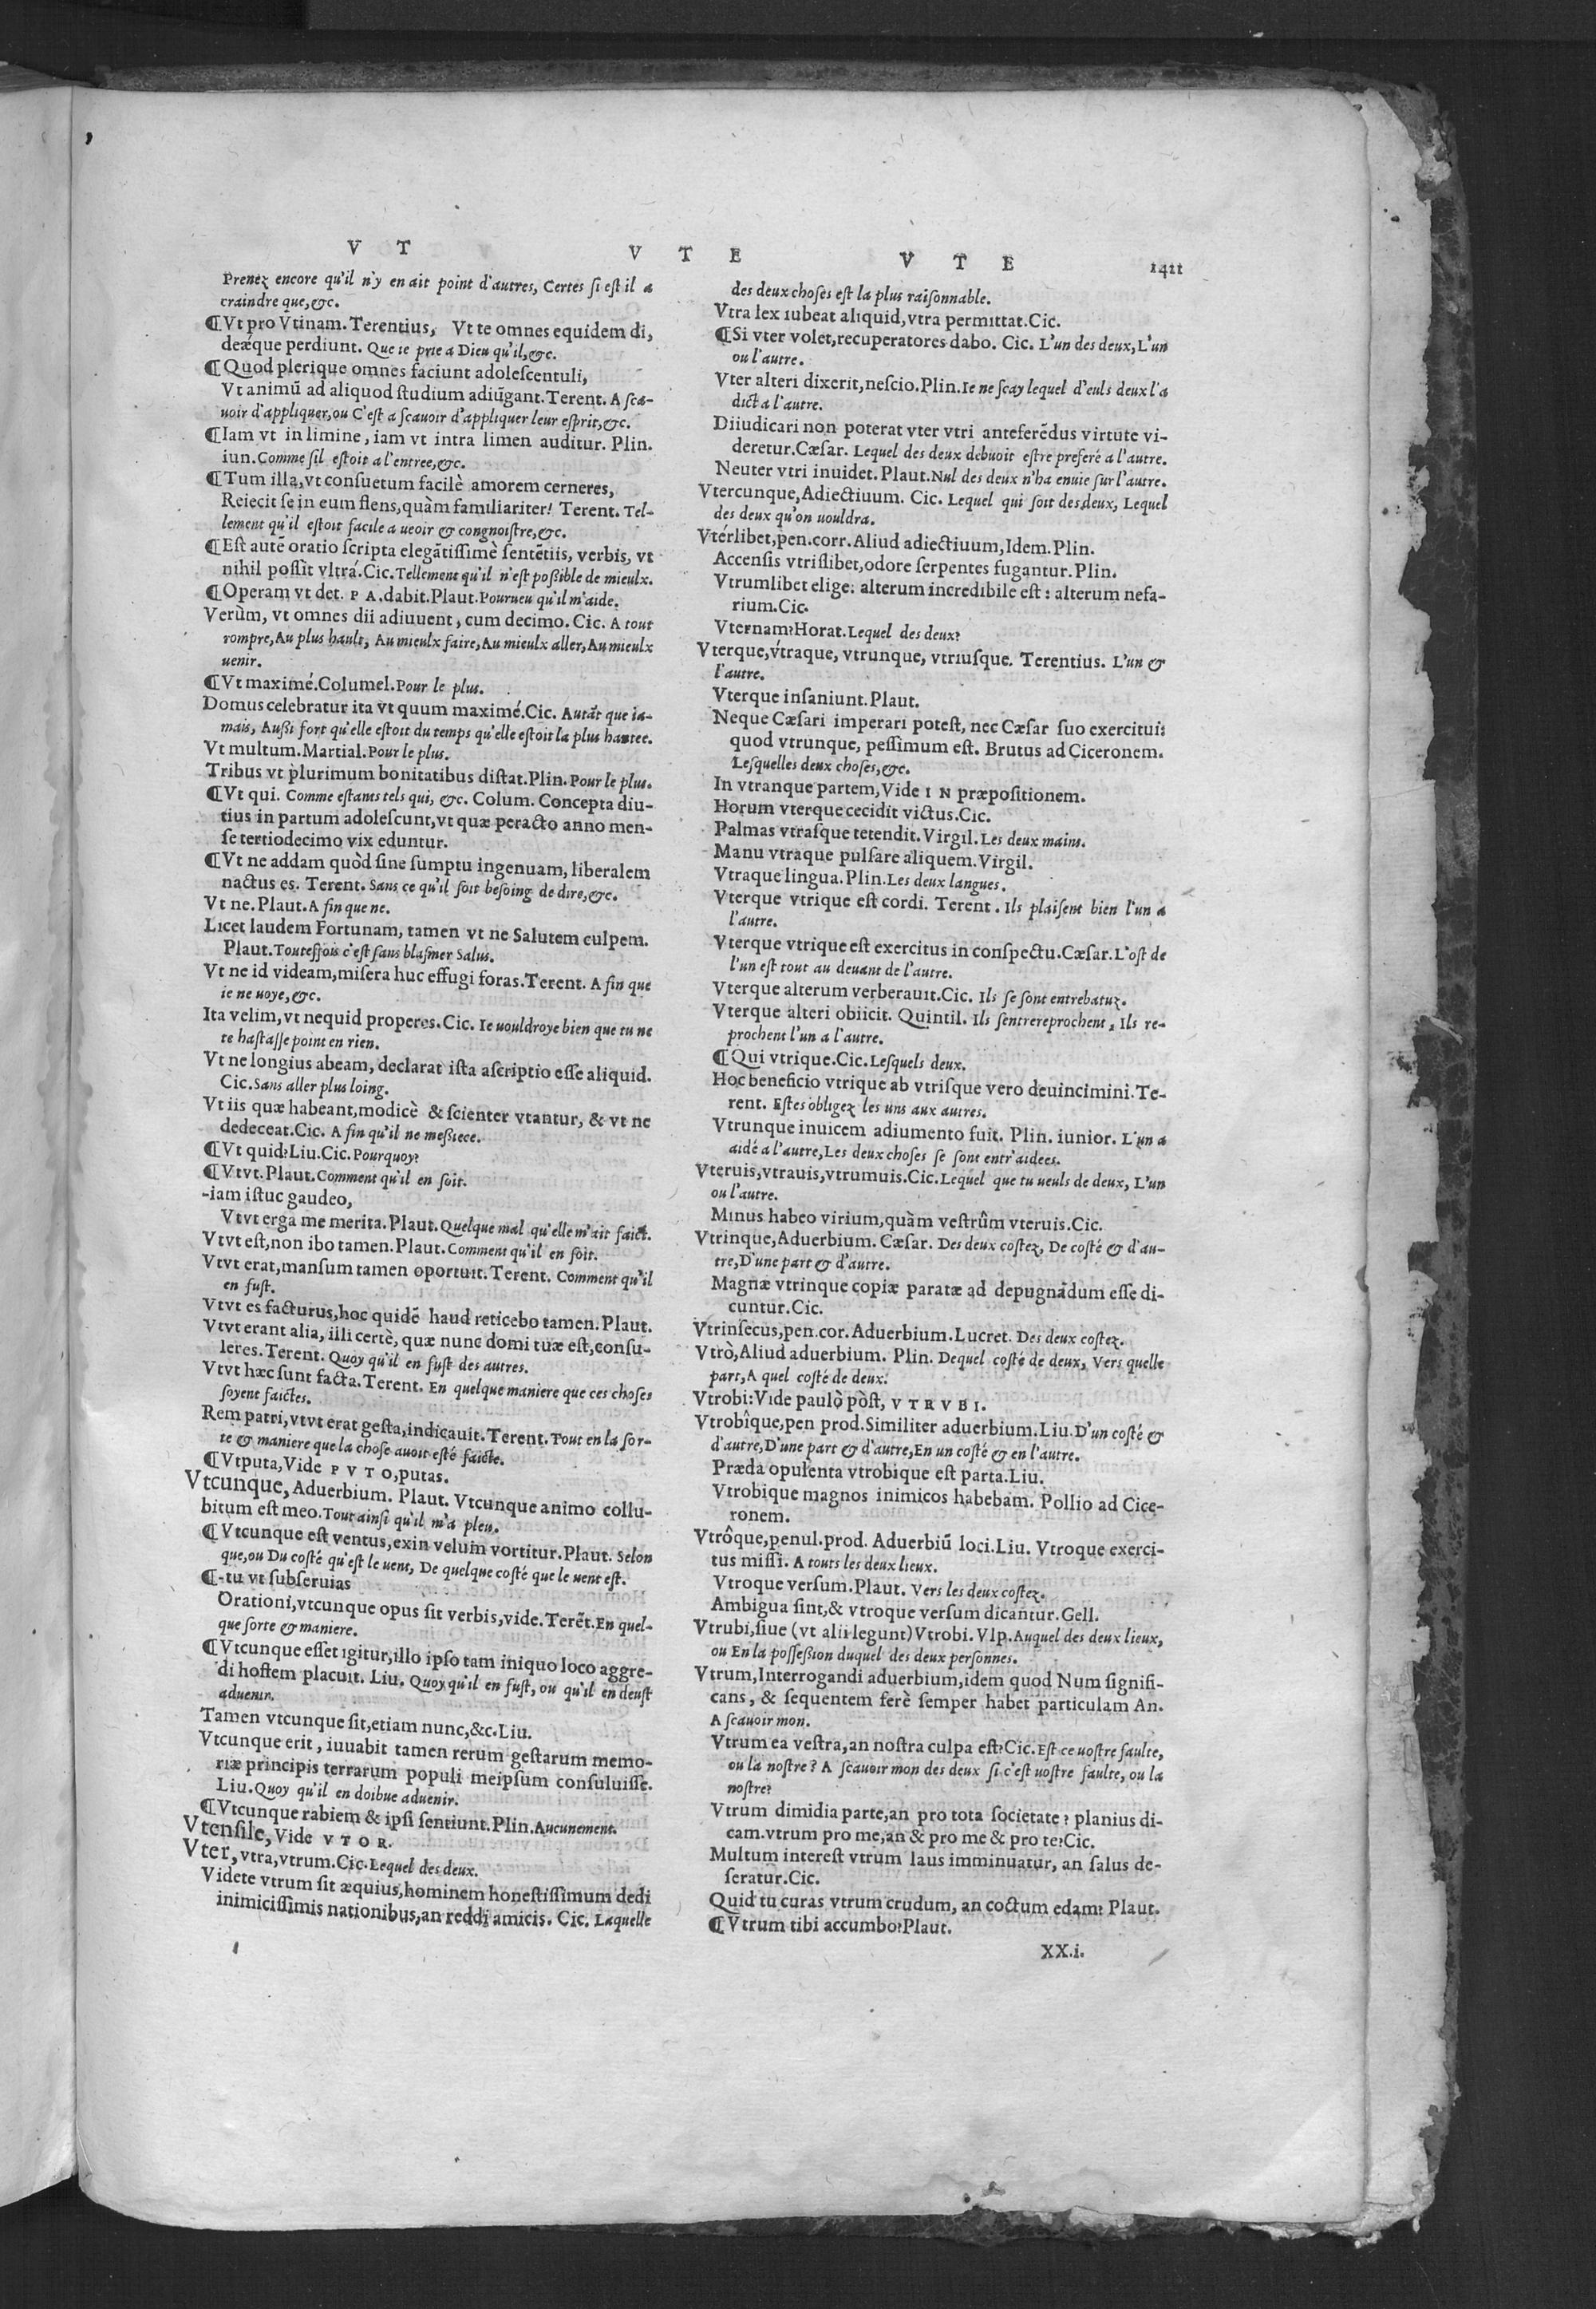 V T
V T E
V T E
1411
Prenez encore qu'il n'y en ait point d'autres, Certes ſi eſt il a
craindre que, &c.
¶Vt pro Vtinam. Terentius, Vt te omnes equidem di,
deæque perdiunt. Que ie prie a Dieu qu'il, &c.
¶Quod plerique omnes faciunt adoleſcentuli,
Vt animũ ad aliquod ſtudium adiũgant. Terent. A ſca-
uoir d'appliquer, ou C'eſt a ſcauoir d'appliquer leur eſprit, &c.
¶Iam vt in limine, iam vt intra limen auditur. Plin.
iun. Comme ſil eſtoit a l'entree, &c.
¶Tum illa, vt conſuetum facilè amorem cerneres,
Reiecit ſe in eum flens, quàm familiariter! Terent. Tel-
lement qu'il eſtoit facile a ueoir & congnoiſtre, &c.
¶Eſt autẽ oratio ſcripta elegãtiſſimè ſentẽtiis, verbis, vt
nihil poſſit vltrá. Cic. Tellement qu'il n'eſt poßible de mieulx.
¶Operam vt det. P A. dabit. Plaut. Pourueu qu'il m'aide.
Verùm, vt omnes dii adiuuent, cum decimo. Cic. A tout
rompre, Au plus hault, Au mieulx faire, Au mieulx aller, Au mieulx
uenir.
¶Vt maximé. Columel. Pour le plus.
Domus celebratur ita vt quum maximé. Cic. Autãt que ia-
mais, Außi fort qu'elle eſtoit du temps qu'elle eſtoit la plus hantee.
Vt multum. Martial. Pour le plus.
Tribus vt plurimum bonitatibus diſtat. Plin. Pour le plus.
¶Vt qui. Comme eſtants tels qui, &c. Colum. Concepta diu-
tius in partum adoleſcunt, vt quæ peracto anno men-
ſe tertiodecimo vix eduntur.
¶Vt ne addam quòd ſine ſumptu ingenuam, liberalem
nactus es. Terent. Sans ce qu'il ſoit beſoing de dire, &c.
Vt ne. Plaut. A fin que ne.
Licet laudem Fortunam, tamen vt ne Salutem culpem.
Plaut. Touteffois c'eſt ſans blaſmer Salus.
Vt ne id videam, miſera huc effugi foras. Terent. A fin que
ie ne uoye, &c.
Ita velim, vt nequid properes. Cic. Ie uouldroye bien que tu ne
te haſtaſſe point en rien.
Vt ne longius abeam, declarat iſta aſcriptio eſſe aliquid.
Cic. Sans aller plus loing.
Vt iis quæ habeant, modicè & ſcienter vtantur, & vt ne
dedeceat. Cic. A fin qu'il ne meßiece.
¶Vt quid? Liu. Cic. Pourquoy?
¶Vtvt. Plaut. Comment qu'il en ſoit.
-iam iſtuc gaudeo,
Vtvt erga me merita. Plaut. Quelque mal qu'elle m'ait faict.
Vtvt eſt, non ibo tamen. Plaut. Comment qu'il en ſoit.
Vtvt erat, manſum tamen oportuit. Terent. Comment qu'il
en fuſt.
Vtvt es facturus, hoc quidẽ haud reticebo tamen. Plaut.
Vtvt erant alia, illi certè, quæ nunc domi tuæ eſt, conſu-
leres. Terent. Quoy qu'il en fuſt des autres.
Vtvt hæc ſunt facta. Terent. En quelque maniere que ces choſes
ſoyent faictes.
Rem patri, vtvt erat geſta, indicauit. Terent. Tout en la ſor-
te & maniere que la choſe auoit eſté faicte.
¶Vtputa, Vide P V T O, putas.
Vtcunque, Aduerbium. Plaut. Vtcunque animo collu-
bitum eſt meo. Tout ainſi qu'il m'a pleu.
¶Vtcunque eſt ventus, exin velum vortitur. Plaut. Selon
que, ou Du coſté qu'eſt le uent, De quelque coſté que le uent eſt.
¶-tu vt ſubſeruias
Orationi, vtcunque opus ſit verbis, vide. Terẽt. En quel-
que ſorte & maniere.
¶Vtcunque eſſet igitur, illo ipſo tam iniquo loco aggre-
di hoſtem placuit. Liu. Quoy qu'il en fuſt, ou qu'il en deuſt
aduenir.
Tamen vtcunque ſit, etiam nunc, &c. Liu.
Vtcunque erit, iuuabit tamen rerum geſtarum memo-
riæ principis terrarum populi meipſum conſuluiſſe.
Liu. Quoy qu'il en doibue aduenir.
¶Vtcunque rabiem & ipſi ſentiunt. Plin. Aucunement.
Vtenſile, Vide V T O R.
Vter, vtra, vtrum. Cic. Lequel des deux.
Videte vtrum ſit æquius, hominem honeſtiſſimum dedi
inimiciſſimis nationibus, an reddi amicis. Cic. Laquelle
des deux choſes eſt la plus raiſonnable.
Vtra lex iubeat aliquid, vtra permittat. Cic.
¶Si vter volet, recuperatores dabo. Cic. L'un des deux, L'un
ou l'autre.
Vter alteri dixerit, neſcio. Plin. Ie ne ſcay lequel d'euls deux l'a
dict a l'autre.
Diiudicari non poterat vter vtri anteferẽdus virtute vi-
deretur. Cæſar. Lequel des deux debuoit eſtre preferé a l'autre.
Neuter vtri inuidet. Plaut. Nul des deux n'ha enuie ſur l'autre.
Vtercunque, Adiectiuum. Cic. Lequel qui ſoit des deux, Lequel
des deux qu'on uouldra.
Vtérlibet, pen. corr. Aliud adiectiuum, Idem. Plin.
Accenſis vtriſlibet, odore ſerpentes fugantur. Plin.
Vtrumlibet elige: alterum incredibile eſt: alterum nefa-
rium. Cic.
Vternam? Horat. Lequel des deux?
Vterque, vtraque, vtrunque, vtriuſque. Terentius. L'un &
l'autre.
Vterque inſaniunt. Plaut.
Neque Cæſari imperari poteſt, nec Cæſar ſuo exercitui:
quod vtrunque, peſſimum eſt. Brutus ad Ciceronem.
Leſquelles deux choſes, &c.
In vtranque partem, Vide I N præpoſitionem.
Horum vterque cecidit victus. Cic.
Palmas vtraſque tetendit. Virgil. Les deux mains.
Manu vtraque pulſare aliquem. Virgil.
Vtraque lingua. Plin. Les deux langues.
Vterque vtrique eſt cordi. Terent. Ils plaiſent bien l'un a
l'autre.
Vterque vtrique eſt exercitus in conſpectu. Cæſar. L'oſt de
l'un eſt tout au deuant de l'autre.
Vterque alterum verberauit. Cic. Ils ſe ſont entrebatuz.
Vterque alteri obiicit. Quintil. Ils ſentrereprochent, Ils re-
prochent l'un a l'autre.
¶Qui vtrique. Cic. Leſquels deux.
Hoc beneficio vtrique ab vtriſque vero deuincimini. Te-
rent. Eſtes obligez les uns aux autres.
Vtrunque inuicem adiumento fuit. Plin. iunior. L'un a
aidé a l'autre, Les deux choſes ſe ſont entr'aidees.
Vteruis, vtrauis, vtrumuis. Cic. Lequel que tu ueuls de deux, L'un
ou l'autre.
Minus habeo virium, quàm veſtrûm vteruis. Cic.
Vtrinque, Aduerbium. Cæſar. Des deux coſtez, De coſté & d'au-
tre, D'une part & d'autre.
Magnæ vtrinque copiæ paratæ ad depugnãdum eſſe di-
cuntur. Cic.
Vtrinſecus, pen. cor. Aduerbium. Lucret. Des deux coſtez.
Vtrò, Aliud aduerbium. Plin. Dequel coſté de deux, Vers quelle
part, A quel coſté de deux.
Vtrobi: Vide paulò pòſt, V T R V B I.
Vtrobîque, pen prod. Similiter aduerbium. Liu. D'un coſté &
d'autre, D'une part & d'autre, En un coſté & en l'autre.
Præda opulenta vtrobique eſt parta. Liu.
Vtrobique magnos inimicos habebam. Pollio ad Cice-
ronem.
Vtrôque, penul. prod. Aduerbiũ loci. Liu. Vtroque exerci-
tus miſſi. A touts les deux lieux.
Vtroque verſum. Plaut. Vers les deux coſtez.
Ambigua ſint, & vtroque verſum dicantur. Gell.
Vtrubi, ſiue (vt alii legunt) Vtrobi. Vlp. Auquel des deux lieux,
ou En la poſſeßion duquel des deux perſonnes.
Vtrum, Interrogandi aduerbium, idem quod Num ſignifi-
cans, & ſequentem ferè ſemper habet particulam An.
A ſcauoir mon.
Vtrum ea veſtra, an noſtra culpa eſt? Cic. Eſt ce uoſtre faulte,
ou la noſtre? A ſcauoir mon des deux ſi c'eſt uoſtre faulte, ou la
noſtre?
Vtrum dimidia parte, an pro tota ſocietate? planius di-
cam. vtrum pro me, an & pro me & pro te? Cic.
Multum intereſt vtrum laus imminuatur, an ſalus de-
ſeratur. Cic.
Quid tu curas vtrum crudum, an coctum edam? Plaut.
¶Vtrum tibi accumbo? Plaut.
XX.i.